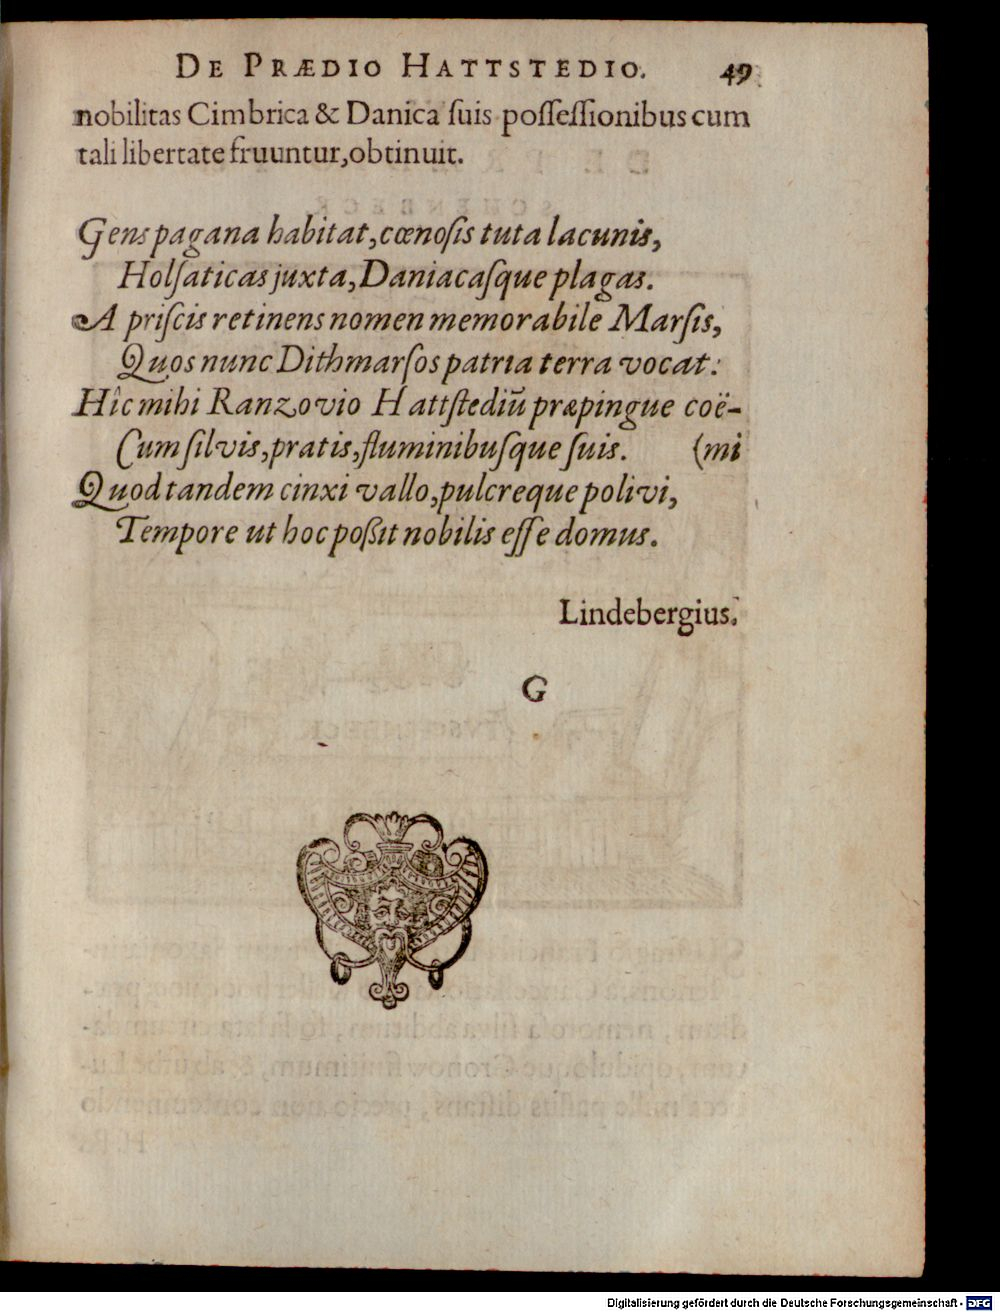 DE PRÆDIO HATTSTEDIO. 49
nobilitas Cimbrica & Danica ſuis poſſeſſionibus cum
tali libertate fruuntur, obtinuit.
Gens pagana habitat, cœnoſis tuta lacunis,
Holſaticas juxta, Daniacaſque plagas.
A priſcis retinens nomen memorabile Marſis,
Quos nunc Dithmarſos patria terra vocat:
Hîc mihi Ranzovio Hattſtediũ præpingue coë-
Cum ſilvis, pratis, fluminibuſque ſuis. (mi
Quod tandem cinxi vallo, pulcreque polivi,
Tempore ut hoc poßit nobilis eſſe domus.
Lindebergius.
G
Digitalisierung gefördert durch die Deutsche Forschungsgemeinschaft - DFG